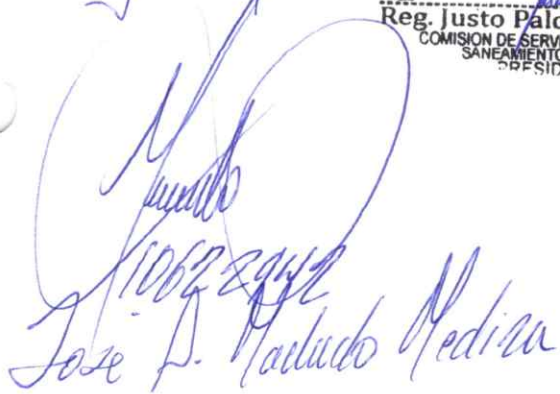 Reg. Justo Palo
COMISION DE SERVI
SANEAMIENTO
PRESID
10622942
José D. Machado Medina